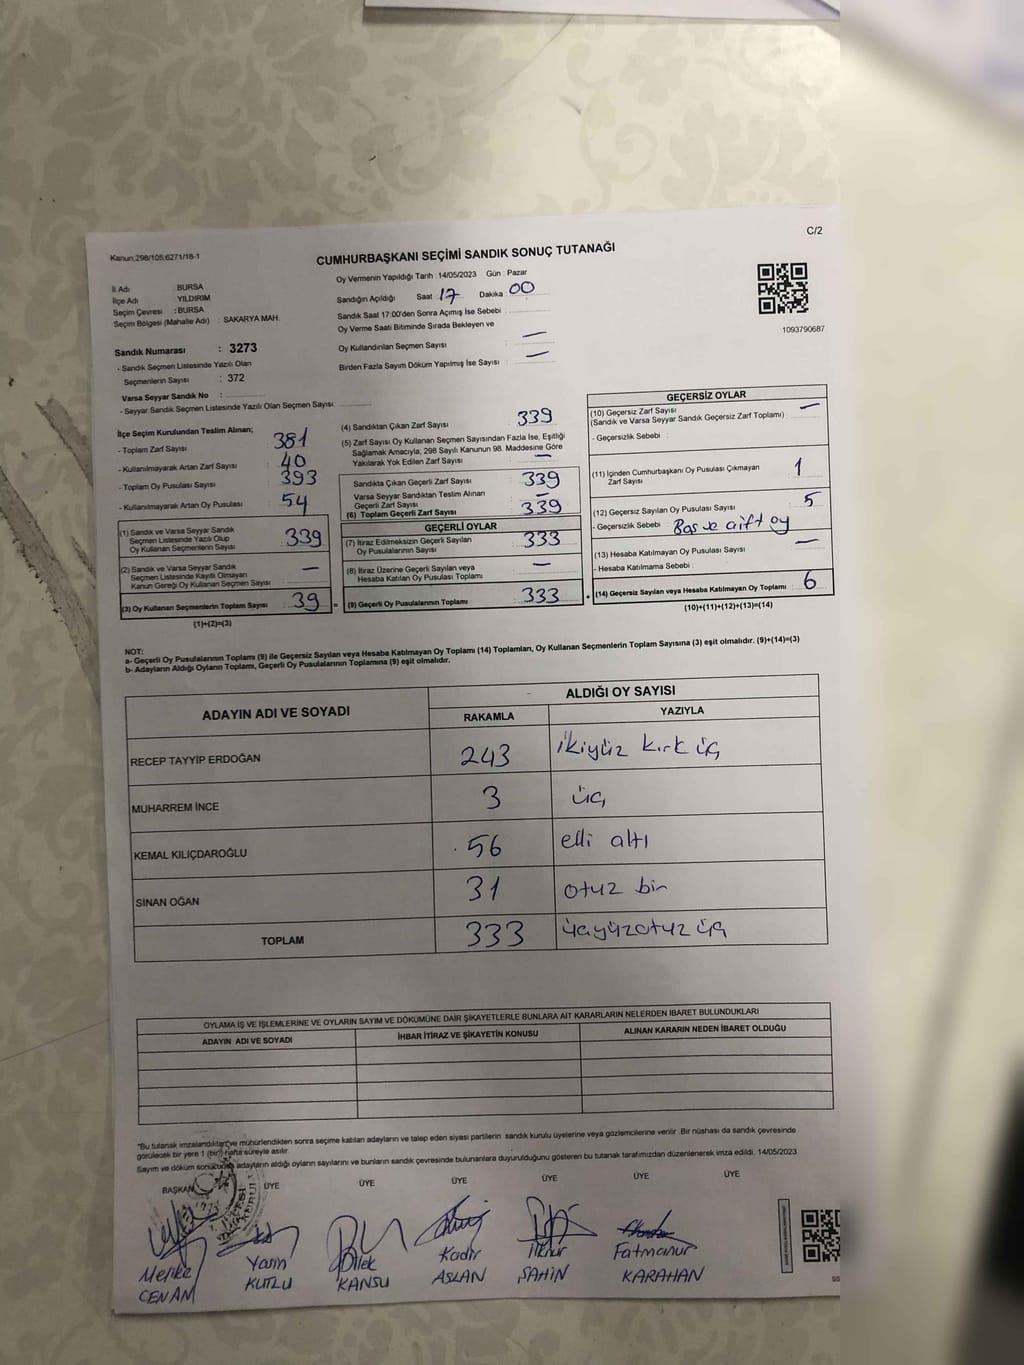 C/2
Kanun;298/105;6271/18-1
CUMHURBAŞKANI SEÇİMİ SANDIK SONUÇ TUTANAĞI
Oy Vermenin Yapıldığı Tarih : 14/05/2023 Gün : Pazar
İl Adı BURSA
İlçe Adı YILDIRIM
Seçim Çevresi : BURSA
Seçim Bölgesi (Mahalle Adı) : SAKARYA MAH.
Sandık Numarası : 3273
- Sandık Seçmen Listesinde Yazılı Olan
Seçmenlerin Sayısı : 372
Varsa Seyyar Sandık No :
- Seyyar Sandık Seçmen Listesinde Yazılı Olan Seçmen Sayısı:
Sandığın Açıldığı Saat 17 Dakika 00
Sandık Saat 17:00'den Sonra Açımış İse Sebebi :
Oy Verme Saati Bitiminde Sırada Bekleyen ve
Oy Kullandırılan Seçmen Sayısı : —
Birden Fazla Sayım Döküm Yapılmış İse Sayısı : —
1093790687
İlçe Seçim Kurulundan Teslim Alınan;
- Toplam Zarf Sayısı : 381
- Kullanılmayarak Artan Zarf Sayısı : 40
- Toplam Oy Pusulası Sayısı : 393
- Kullanılmayarak Artan Oy Pusulası : 54
(1) Sandık ve Varsa Seyyar Sandık
Seçmen Listesinde Yazılı Olup
Oy Kullanan Seçmenlerin Sayısı : 339
(2) Sandık ve Varsa Seyyar Sandık
Seçmen Listesinde Kayıtlı Olmayan
Kanun Gereği Oy Kullanan Seçmen Sayısı : —
(3) Oy Kullanan Seçmenlerin Toplam Sayısı : 39 =
(1)+(2)=(3)
(4) Sandıktan Çıkan Zarf Sayısı : 339
(5) Zarf Sayısı Oy Kullanan Seçmen Sayısından Fazla İse, Eşitliği
Sağlamak Amacıyla; 298 Sayılı Kanunun 98. Maddesine Göre
Yakılarak Yok Edilen Zarf Sayısı : —
Sandıkta Çıkan Geçerli Zarf Sayısı : 339
Varsa Seyyar Sandıktan Teslim Alınan
Geçerli Zarf Sayısı : —
(6) Toplam Geçerli Zarf Sayısı : 339
GEÇERLİ OYLAR
(7) İtiraz Edilmeksizin Geçerli Sayılan
Oy Pusulalarının Sayısı : 333
(8) İtiraz Üzerine Geçerli Sayılan veya
Hesaba Katılan Oy Pusulası Toplamı : —
(9) Geçerli Oy Pusulalarının Toplamı : 333 +
GEÇERSİZ OYLAR
(10) Geçersiz Zarf Sayısı : —
(Sandık ve Varsa Seyyar Sandık Geçersiz Zarf Toplamı)
- Geçersizlik Sebebi :
(11) İçinden Cumhurbaşkanı Oy Pusulası Çıkmayan
Zarf Sayısı : 1
(12) Geçersiz Sayılan Oy Pusulası Sayısı : 5
- Geçersizlik Sebebi : Boş ve çift oy
(13) Hesaba Katılmayan Oy Pusulası Sayısı : —
- Hesaba Katılmama Sebebi :
(14) Geçersiz Sayılan veya Hesaba Katılmayan Oy Toplamı : 6
(10)+(11)+(12)+(13)=(14)
NOT:
a- Geçerli Oy Pusulalarının Toplamı (9) ile Geçersiz Sayılan veya Hesaba Katılmayan Oy Toplamı (14) Toplamları, Oy Kullanan Seçmenlerin Toplam Sayısına (3) eşit olmalıdır. (9)+(14)=(3)
b- Adayların Aldığı Oyların Toplamı, Geçerli Oy Pusulalarının Toplamına (9) eşit olmalıdır.
ADAYIN ADI VE SOYADI ALDIĞI OY SAYISI
RAKAMLA YAZIYLA
RECEP TAYYİP ERDOĞAN 243 ikiyüz kırk üç
MUHARREM İNCE 3 üç
KEMAL KILIÇDAROĞLU 56 elli altı
SİNAN OĞAN 31 otuz bir
TOPLAM 333 üçyüzotuz üç
OYLAMA İŞ VE İŞLEMLERİNE VE OYLARIN SAYIM VE DÖKÜMÜNE DAİR ŞİKAYETLERLE BUNLARA AİT KARARLARIN NELERDEN İBARET BULUNDUKLARI
ADAYIN ADI VE SOYADI İHBAR İTİRAZ VE ŞİKAYETİN KONUSU ALINAN KARARIN NEDEN İBARET OLDUĞU
*Bu tutanak imzalandıktan ve mühürlendikten sonra seçime katılan adayların ve talep eden siyasi partilerin sandık kurulu üyelerine veya gözlemcilerine verilir .Bir nüshası da sandık çevresinde
görülecek bir yere 1 (bir) hafta süreyle asılır.
Sayım ve döküm sonucunda adayların aldığı oyların sayılarını ve bunların sandık çevresinde bulunanlara duyurulduğunu gösteren bu tutanak tarafımızdan düzenlenerek imza edildi. 14/05/2023
BAŞKAN ÜYE ÜYE ÜYE ÜYE ÜYE ÜYE
Melike Yasin Dilek Kadir İlknur Fatmanur
CENAM KUTLU KANSU ASLAN ŞAHİN KARAHAN